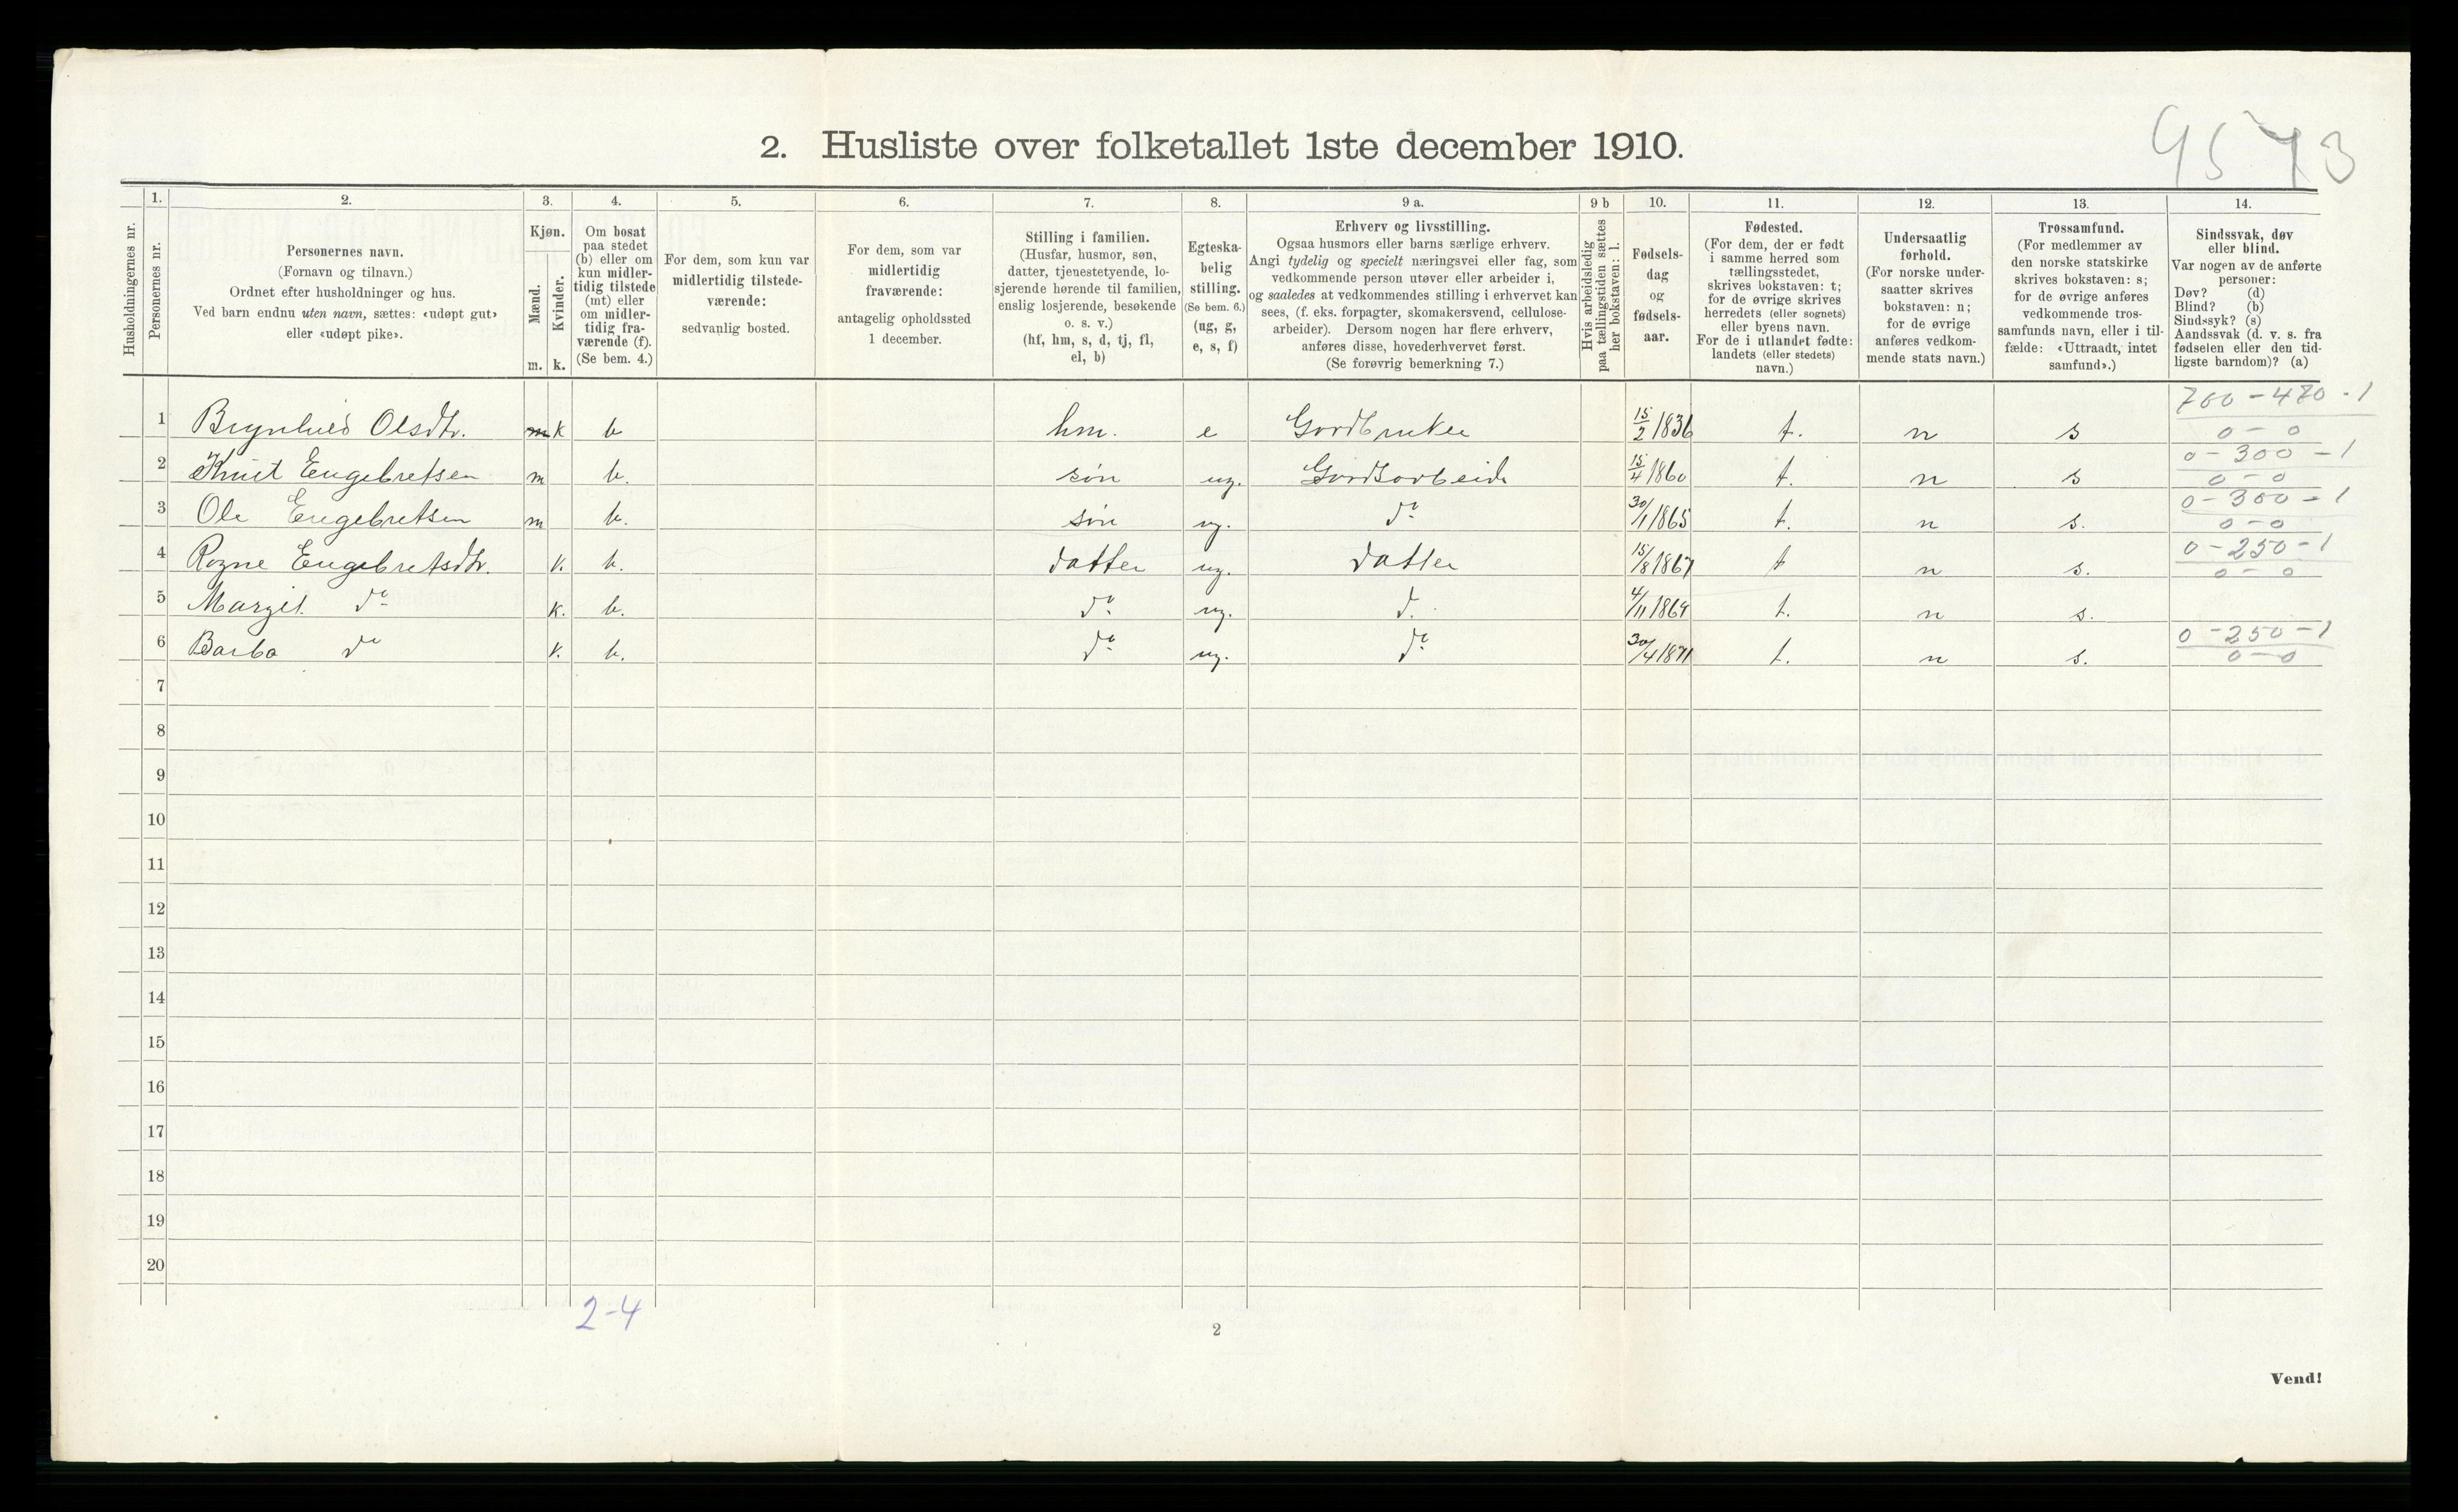 9573
2. Husliste over folketallet 1ste december 1910.
Husholdningernes nr.
1.
Personernes nr.
2.
Personernes navn.
(Fornavn og tilnavn.)
Ordnet efter husholdninger og hus.
Ved barn endnu uten navn, sættes: «udøpt gut»
eller «udøpt pike».
3.
Kjøn.
Mænd.
Kvinder.
m. k.
4.
Om bosat
paa stedet
(b) eller om
kun midler-
tidig tilstede
(mt) eller
om midler-
tidig fra-
værende (f).
(Se bem. 4.)
5.
For dem, som kun var
midlertidig tilstede-
værende:
sedvanlig bosted.
6.
For dem, som var
midlertidig
fraværende:
antagelig opholdssted
1 december.
7.
Stilling i familien.
(Husfar, husmor, søn,
datter, tjenestetyende, lo-
sjerende hørende til familien,
enslig losjerende, besøkende
o. s. v.)
(hf, hm, s, d, tj, fl,
el, b)
8.
Egteska-
belig
stilling.
(Se bem. 6.)
(ug, g,
e, s, f)
9 a.
Erhverv og livsstilling.
Ogsaa husmors eller barns særlige erhverv.
Angi tydelig og specielt næringsvei eller fag, som
vedkommende person utøver eller arbeider i,
og saaledes at vedkommendes stilling i erhvervet kan
sees, (f. eks. forpagter, skomakersvend, cellulose-
arbeider). Dersom nogen har flere erhverv,
anføres disse, hovederhvervet først.
(Se forøvrig bemerkning 7.)
9 b
Hvis arbeidsledig
paa tællingstiden sættes
her bokstaven: l.
10.
Fødsels-
dag
og
fødsels-
aar.
11.
Fødested.
(For dem, der er født
i samme herred som
tællingsstedet,
skrives bokstaven: t;
for de øvrige skrives
herredets (eller sognets)
eller byens navn.
For de i utlandet fødte:
landets (eller stedets)
navn.)
12.
Undersaatlig
forhold.
(For norske under-
saatter skrives
bokstaven: n;
for de øvrige
anføres vedkom-
mende stats navn.)
13.
Trossamfund.
(For medlemmer av
den norske statskirke
skrives bokstaven: s;
for de øvrige anføres
vedkommende tros-
samfunds navn, eller i til-
fælde: «Uttraadt, intet
samfund».)
14.
Sindssvak, døv
eller blind.
Var nogen av de anførte
personer:
Døv? (d)
Blind? (b)
Sindssyk? (s)
Aandssvak (d. v. s. fra
fødselen eller den tid-
ligste barndom)? (a)
700 - 470 - 1
1 Brynhild Olsdtr. m k b hm. e Gardbruker 15/2 1836 t. n s 0 - 0
0 - 300 - 1
2 Knut Engebretsen m b. søn ug. Gardsarbeide 15/4 1860 t. n s 0 - 0
0 - 300 - 1
3 Ole Engebretsen m b. søn ug. do 30/11 1865 t. n s. 0 - 0
0 - 250 - 1
4 Rogne Engebretsdtr. k. b. datter ug. datter 15/8 1867 t n s. 0 - 0
5 Margit do k. b. do ug. d. 4/11 1869 t. n s.
0 - 250 - 1
6 Barbo do k. b. do ug. do 30/4 1871 t. n s. 0 - 0
7
8
9
10
11
12
13
14
15
16
17
18
19
20
2-4
2
Vend!